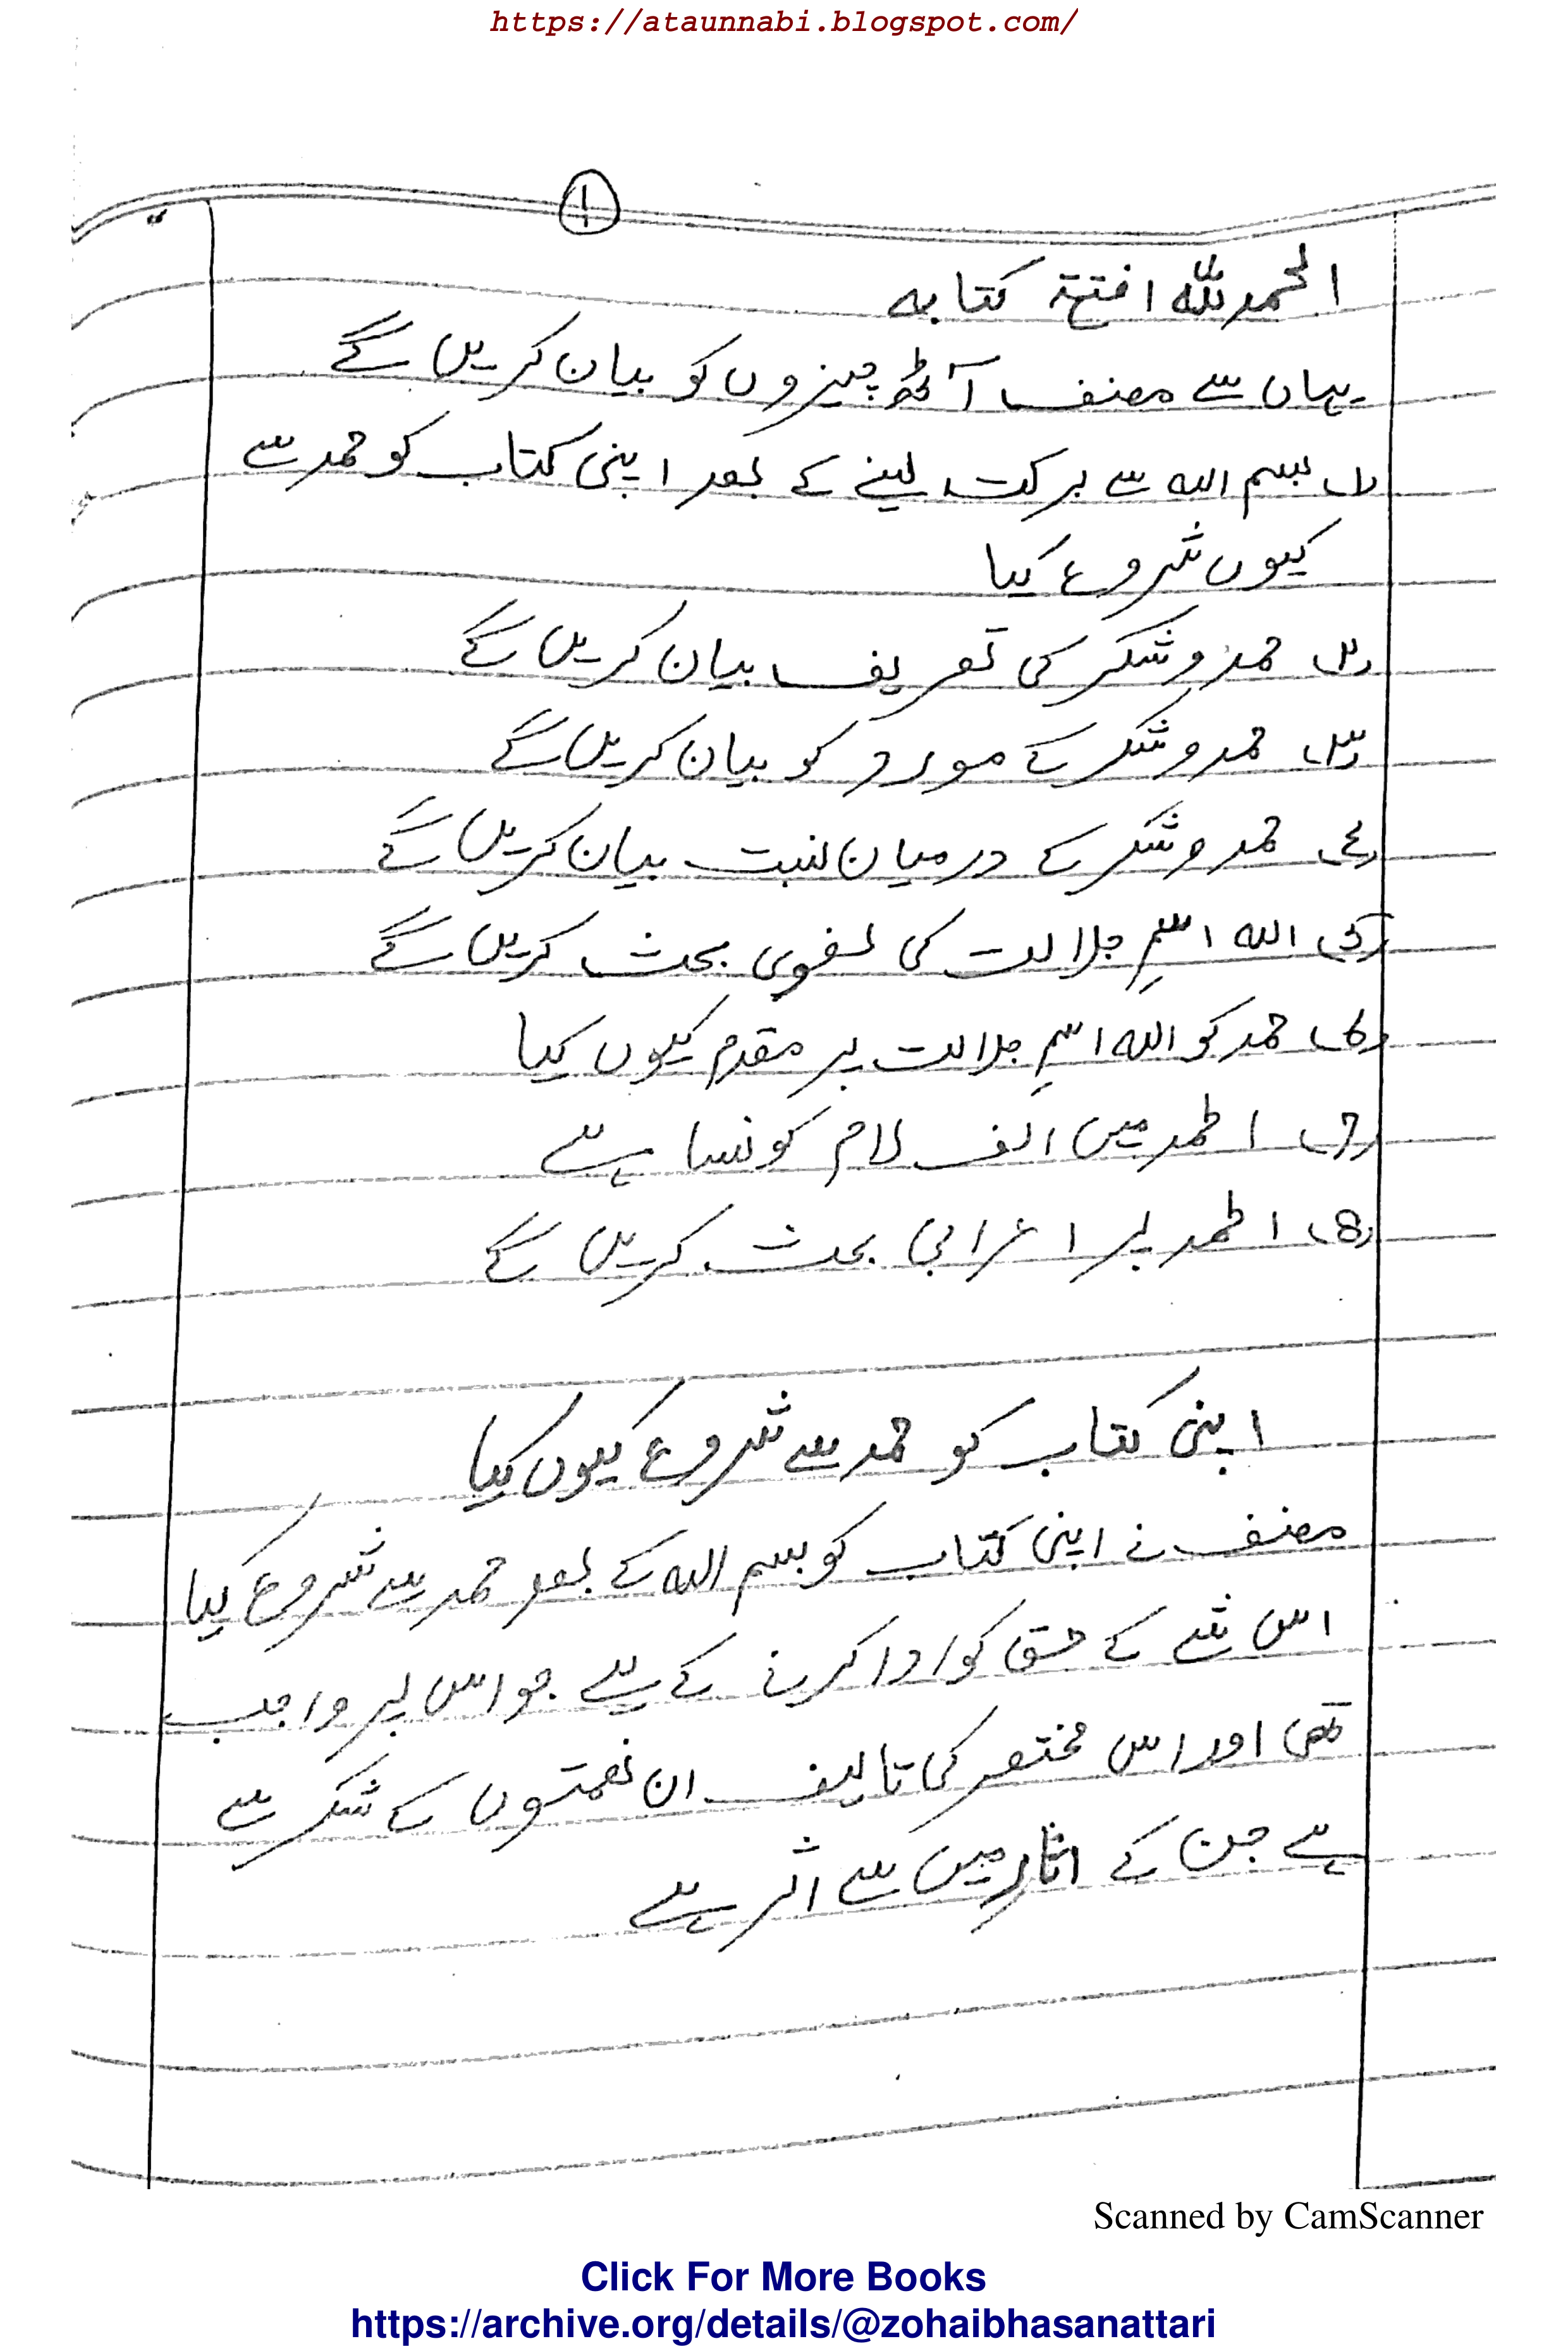 https://ataunnabi.blogspot.com/
۱
الحمد للہ افتتح کتابہ
یہاں سے مصنف آٹھ چیزوں کو بیان کریں گے
(۱) بسم اللہ سے برکت لینے کے بعد اپنی کتاب کو حمد سے
کیوں شروع کیا
(۲) حمد و شکر کی تعریف بیان کریں گے
(۳) حمد و شکر کے مورد کو بیان کریں گے
(۴) حمد و شکر کے درمیان نسبت بیان کریں گے
(۵) اللہ اسمِ جلالت کی لغوی بحث کریں گے
(۶) حمد کو اللہ اسمِ جلالت پر مقدم کیوں کیا
(۷) الحمد میں الف لام کونسا ہے
(۸) الحمد پر اعرابی بحث کریں گے
اپنی کتاب کو حمد سے شروع کیوں کیا
مصنف نے اپنی کتاب کو بسم اللہ کے بعد حمد سے شروع کیا
اس شئے کے حق کو ادا کرنے کے لیے جو اس پر واجب
تھی اور اس مختصر کی تالیف ان نعمتوں کے شکر سے
ہے جن کے اثار میں سے اثر ہے
Scanned by CamScanner
Click For More Books
https://archive.org/details/@zohaibhasanattari